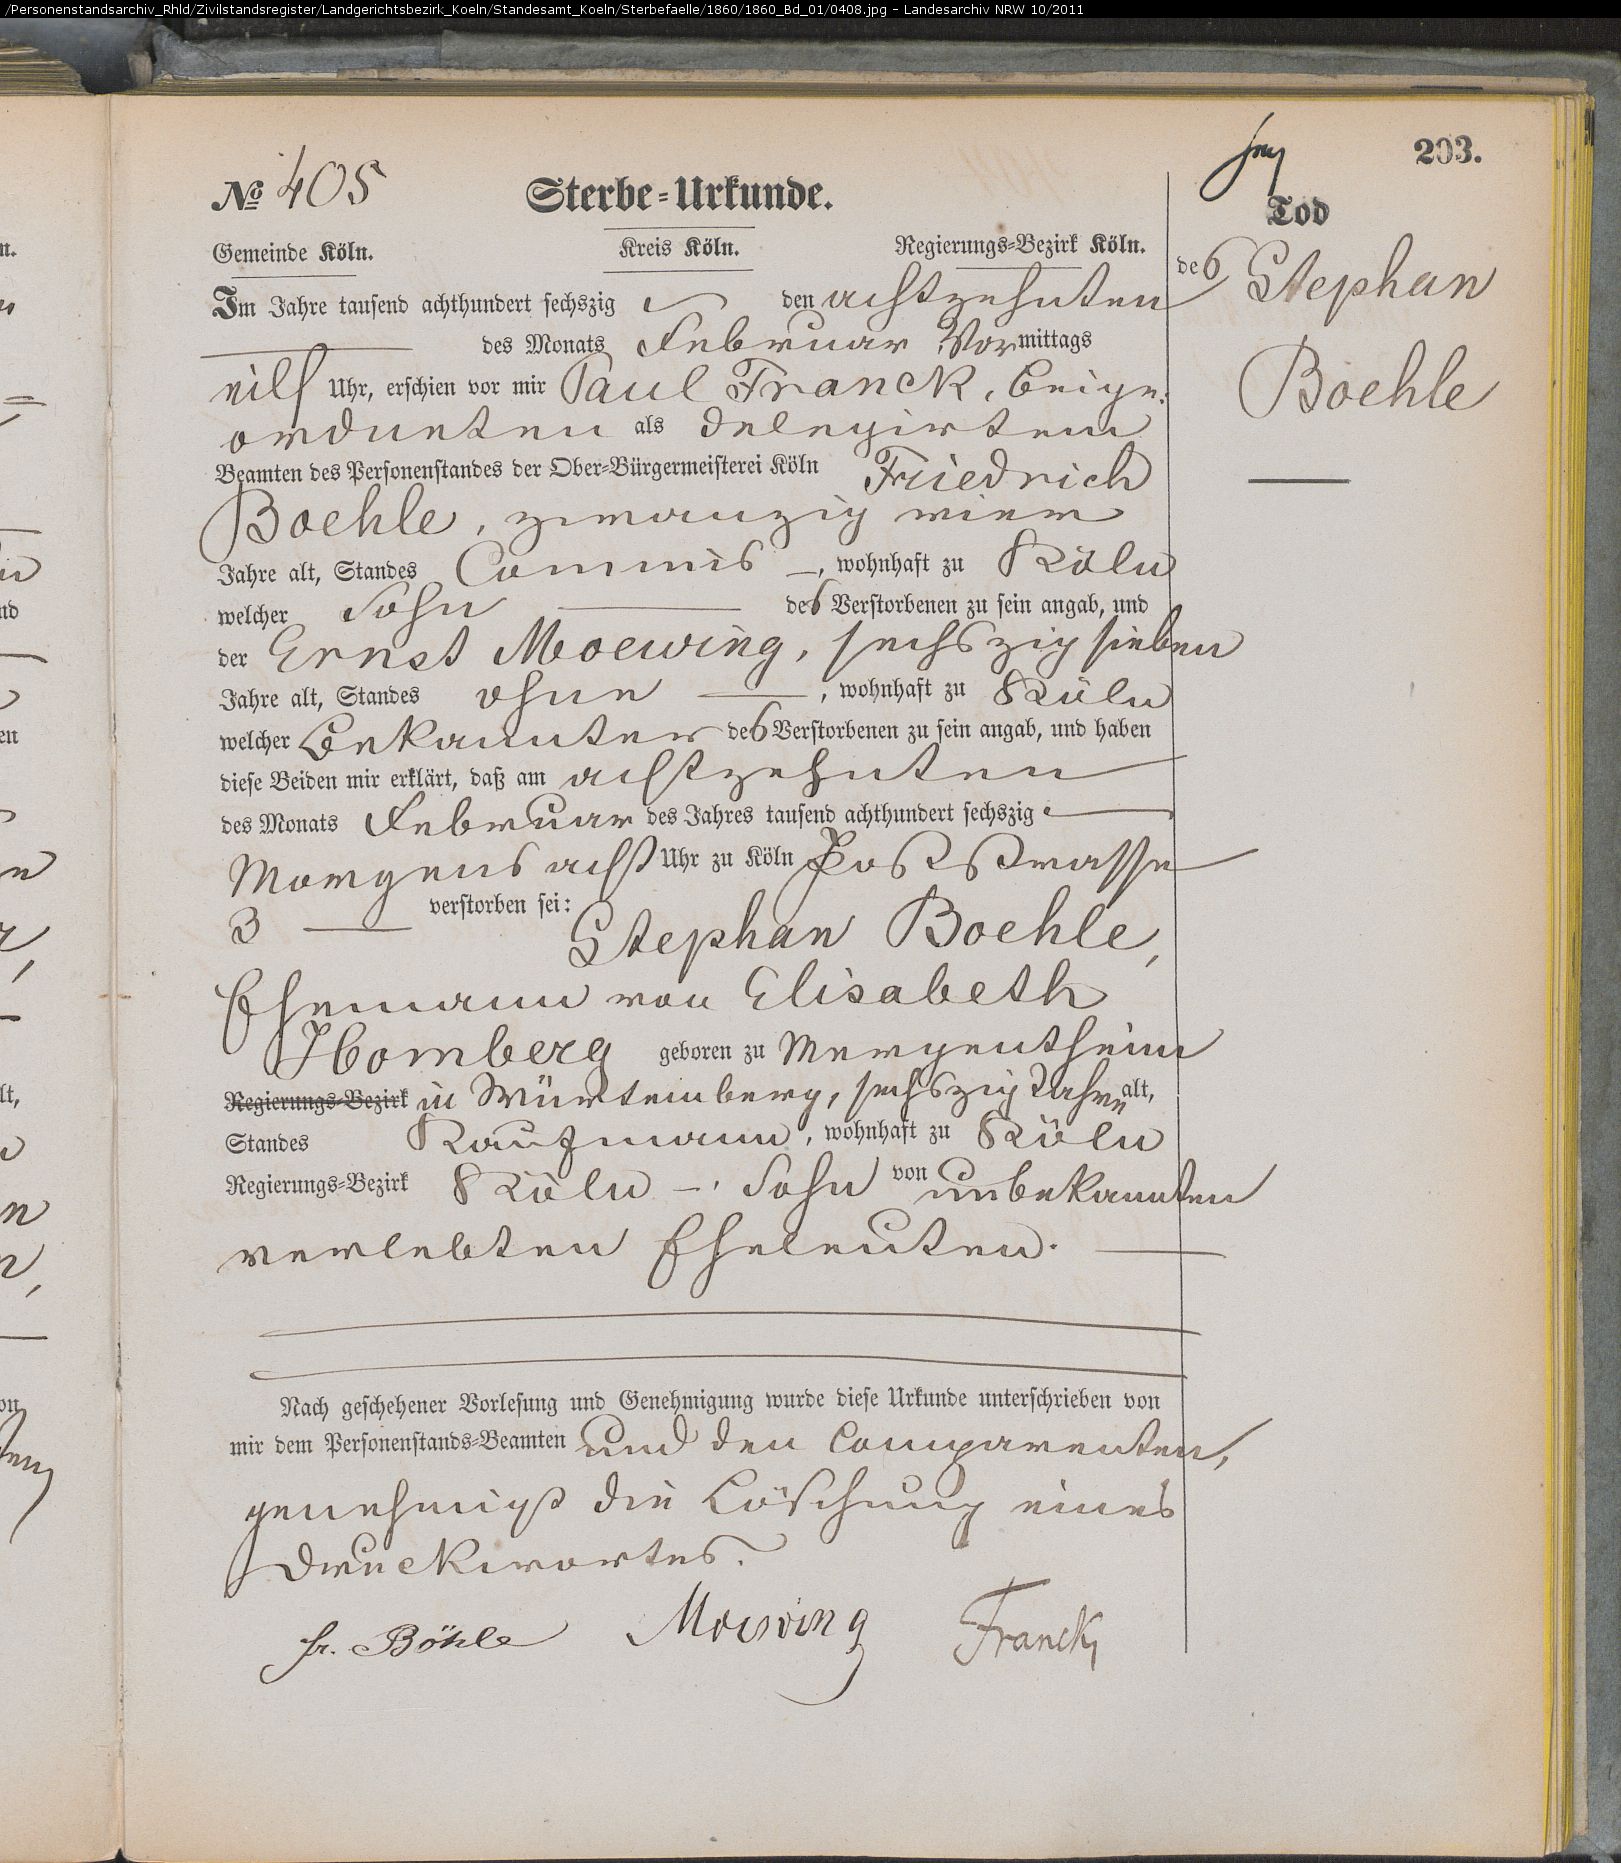 /Personenstandsarchiv_Rhld/Zivilstandsregister/Landgerichtsbezirk_Koeln/Standesamt_Koeln/Sterbefaelle/1860/1860_Bd_01/0408.jpg - Landesarchiv NRW 10/2011
203.
No 405 Sterbe-Urkunde.
Gemeinde Köln. Kreis Köln. Regierungs-Bezirk Köln.
Im Jahre tausend achthundert sechszig den achtzehnten
des Monats Februar Vormittags
eilf Uhr, erschien vor mir Paul Franck, Beige-
ordneten als delegirtem
Beamten des Personenstandes der Ober-Bürgermeisterei Köln Friedrich
Boehle, zwanzig vier
Jahre alt, Standes Commis, wohnhaft zu Köln
welcher Sohn des Verstorbenen zu sein angab, und
der Ernst Moewing, sechszig sieben
Jahre alt, Standes ohne, wohnhaft zu Köln
welcher Bekannter des Verstorbenen zu sein angab, und haben
diese Beiden mir erklärt, daß am achtzehnten
des Monats Februar des Jahres tausend achthundert sechszig
Morgens acht Uhr zu Köln Poststrasse
3 verstorben sei: Stephan Boehle,
Ehemann von Elisabeth
Homberg geboren zu Mergentheim
Regierungs-Bezirk in Würtemberg, sechszig Jahre alt,
Standes Kaufmann, wohnhaft zu Köln
Regierungs-Bezirk Köln, Sohn von unbekannten
verlebten Eheleuten.
Nach geschehener Vorlesung und Genehmigung wurde diese Urkunde unterschrieben von
mir dem Personenstands-Beamten und den Comparenten,
genehmigt die Löschung eines
Druckwortes.
Fr. Böhle Moewing Franck
Tod
des Stephan
Boehle